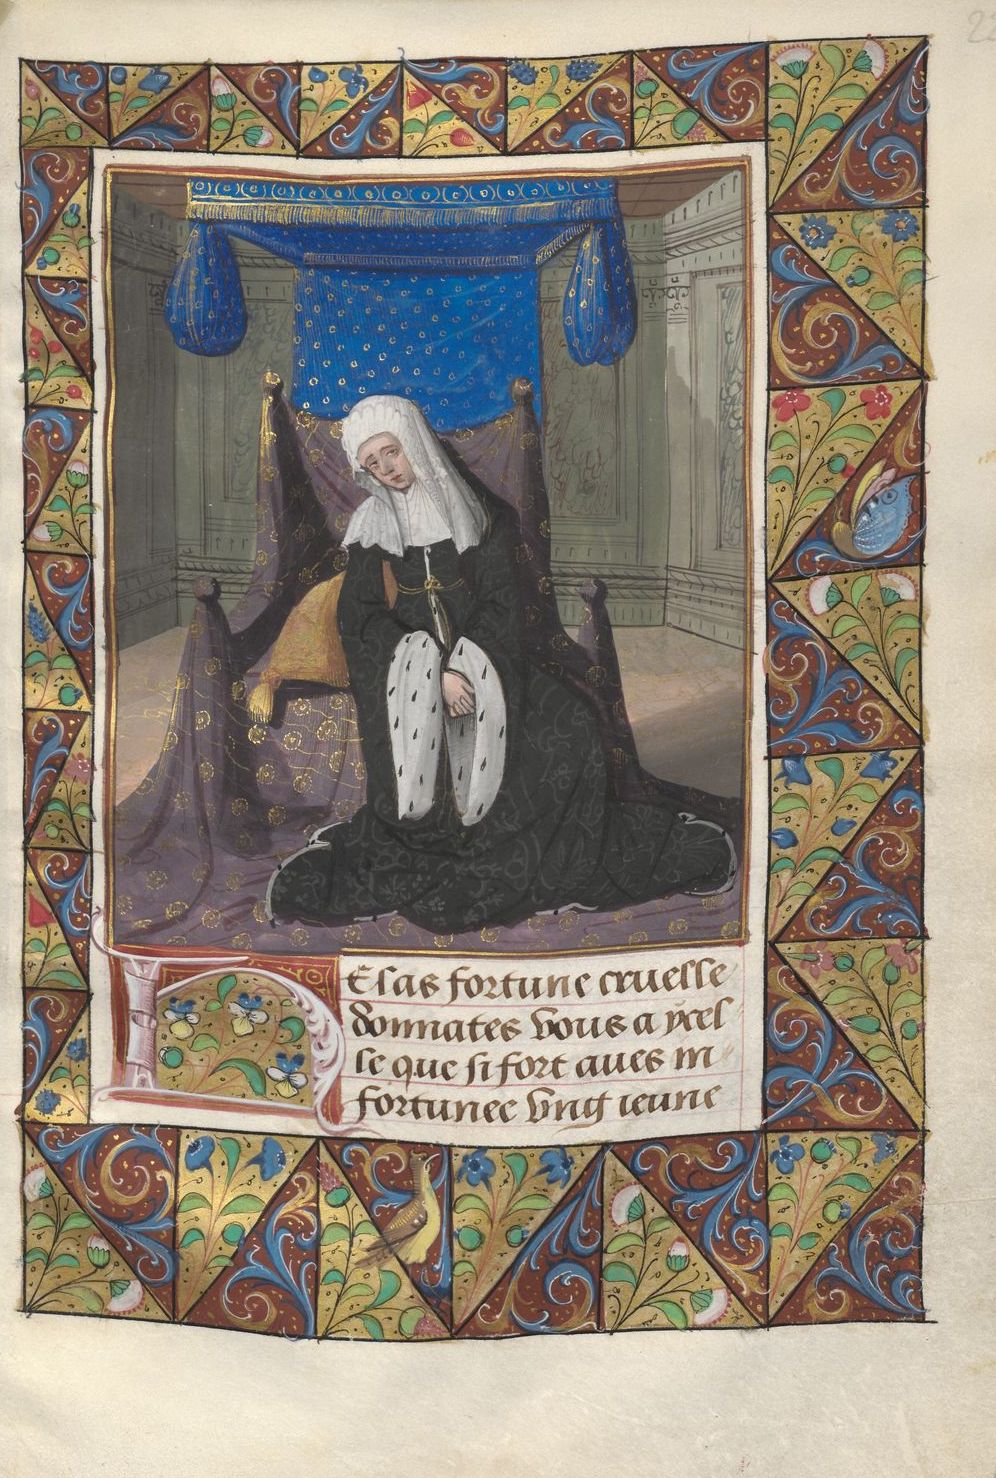 HElas fortune cruelle
donnates vous a ycel
le que si fort aves in
fortunee vng ieune